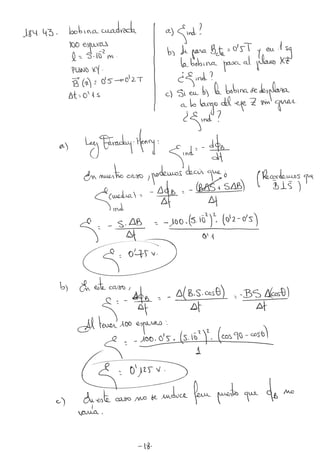 184.43. bobina cuadrada
100 espiras
l = 5·10⁻² m
PLANO XY
B⃗(z) = 0'5 → 0'2 T
Δt = 0'1 s
a) ξind?
b) Si para Bcte = 0'5 T y en 1 sg
la bobina pasa al plano XZ
¿ξind?
c) Si en b) la bobina se desplaza
a lo largo del eje Z sin girar
¿ξind?
a) Ley Faraday-Henry: ξind = - dϕB/dt
En nuestro caso, podemos decir que (Recordemos que B⊥S)
ξ(media)ind = - ΔϕB/Δt = - (BΔS + SΔB)/Δt
0
ξ = - S·ΔB/Δt = - 100·(5·10⁻²)²·(0'2-0'5)/0'1
ξ = 0'75 v.
b) En este caso,
ξ = - ΔϕB/Δt = - Δ(B.S.cosθ)/Δt = -BS Δ(cosθ)/Δt
Al tener 100 espiras:
ξ = - 100·0'5·(5·10⁻²)²·(cos 90 - cos 0)/1
ξ = 0'125 v.
c) En este caso no se induce fem puesto que ϕB no
varía.
-18-